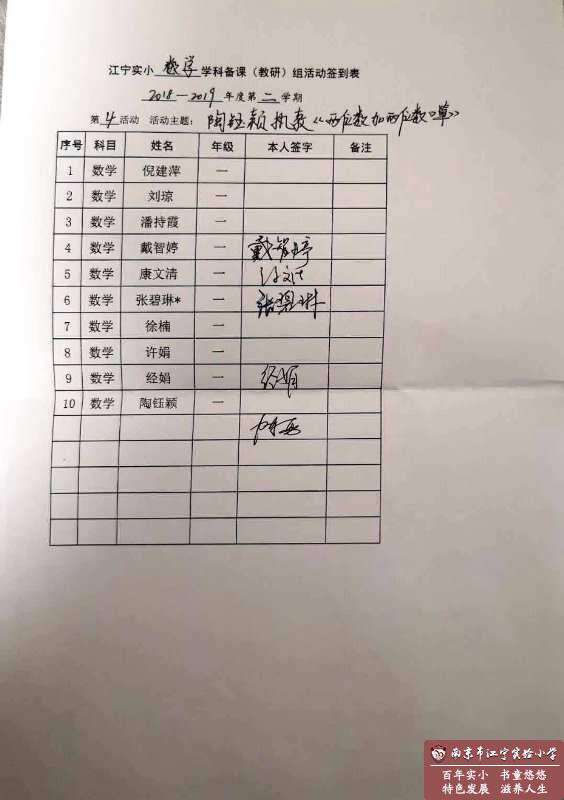 江宁实小 数学 学科备课（教研）组活动签到表
2018—2019 年度第 二 学期
第 4 活动 活动主题： 陶钰颖执教《两位数加两位数口算》
序号 科目 姓名 年级 本人签字 备注
1 数学 倪建萍 一
2 数学 刘琼 一
3 数学 潘持霞 一
4 数学 戴智婷 一 戴智婷
5 数学 康文清 一
6 数学 张碧琳* 一 张碧琳
7 数学 徐楠 一
8 数学 许娟 一
9 数学 经娟 一 经娟
10 数学 陶钰颖 一
南京市江宁实验小学
百年实小 书童悠悠
特色发展 滋养人生